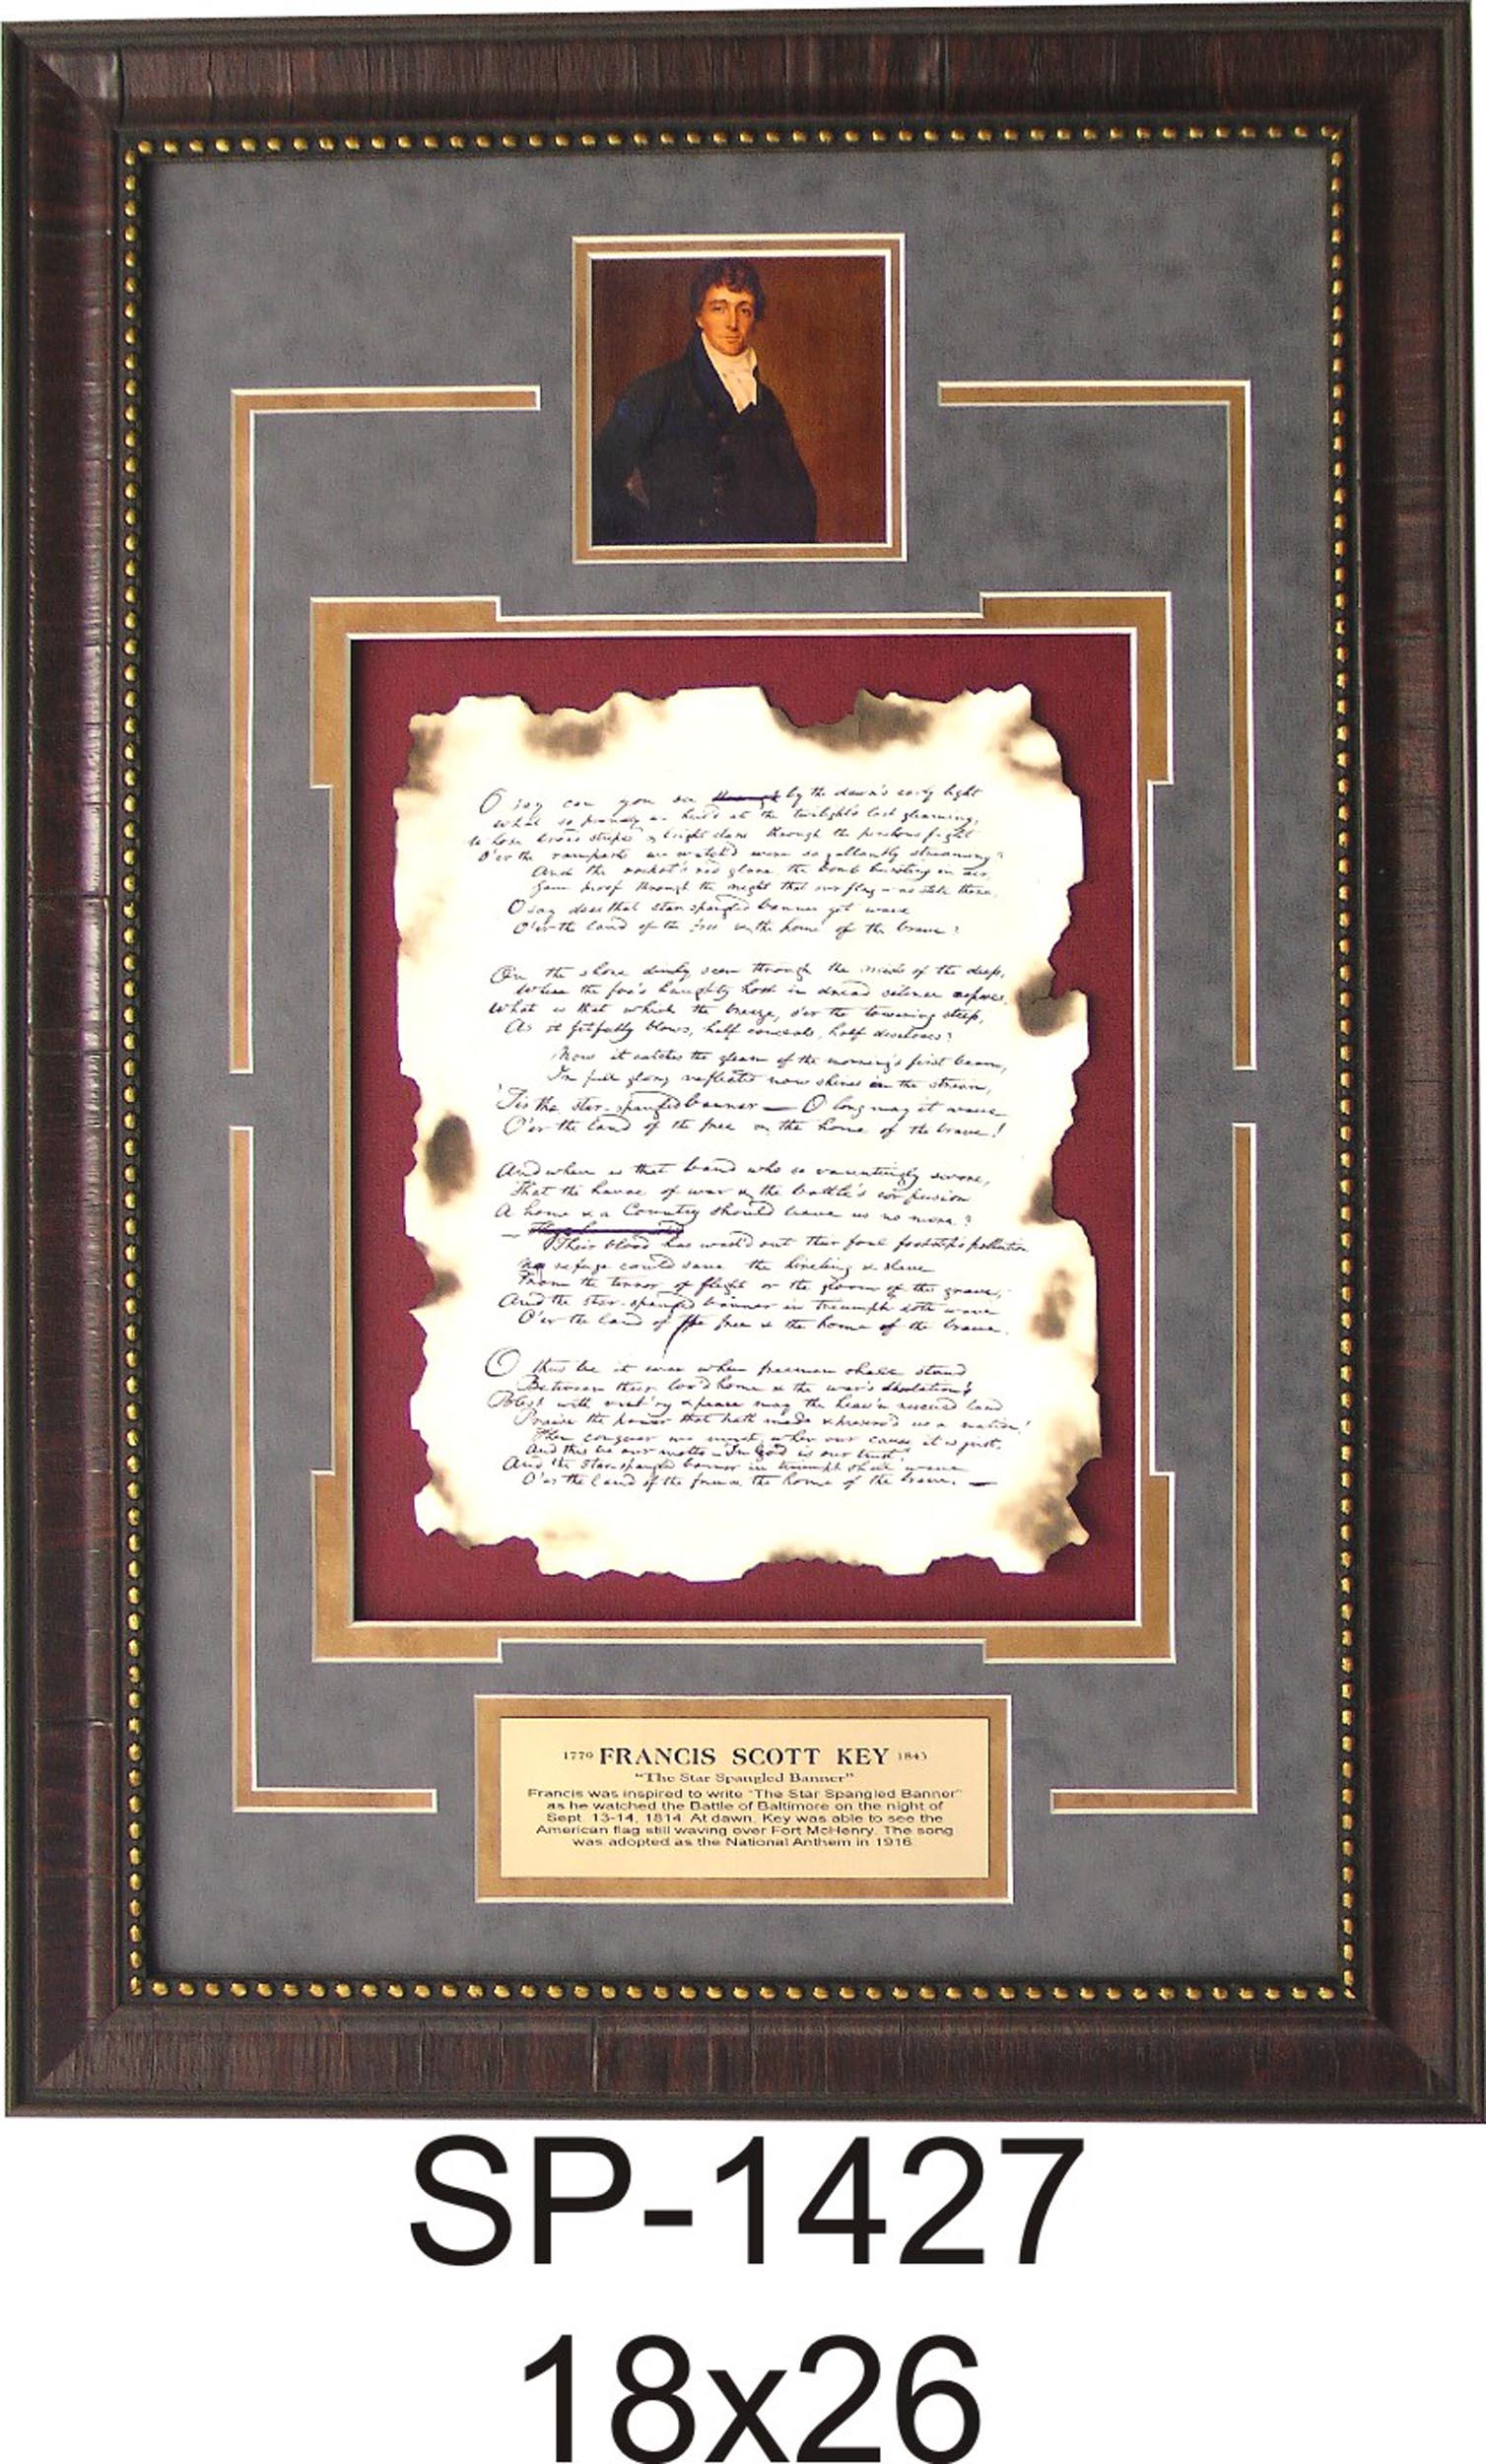 O say can you see through by the dawn's early light
What so proudly we hail'd at the twilight's last gleaming,
Whose broad stripes & bright stars through the perilous fight
O'er the ramparts we watch'd were so gallantly streaming?
And the rocket's red glare, the bomb bursting in air,
Gave proof through the night that our flag was still there,
O say does that star-spangled banner yet wave
O'er the land of the free & the home of the brave?
On the shore dimly seen through the mists of the deep,
Where the foe's haughty host in dread silence reposes,
What is that which the breeze, o'er the towering steep,
As it fitfully blows, half conceals, half discloses?
Now it catches the gleam of the morning's first beam,
In full glory reflected now shines in the stream,
'Tis the star-spangled banner — O long may it wave
O'er the land of the free & the home of the brave!
And where is that band who so vauntingly swore,
That the havoc of war & the battle's confusion
A home & a Country should leave us no more?
Their blood has wash'd out their foul footstep's pollution
No refuge could save the hireling & slave
From the terror of flight or the gloom of the grave,
And the star-spangled banner in triumph doth wave
O'er the land of the free & the home of the brave.
O thus be it ever when freemen shall stand
Between their lov'd home & the war's desolation!
Blest with vict'ry & peace may the heav'n rescued land
Praise the power that hath made & preserv'd us a nation!
Then conquer we must, when our cause it is just,
And this be our motto - "In God is our trust,"
And the star-spangled banner in triumph shall wave
O'er the land of the free & the home of the brave. —
1779 FRANCIS SCOTT KEY 1843
"The Star Spangled Banner"
Francis was inspired to write "The Star Spangled Banner"
as he watched the Battle of Baltimore on the night of
Sept. 13-14, 1814. At dawn, Key was able to see the
American flag still waving over Fort McHenry. The song
was adopted as the National Anthem in 1916
SP-1427
18x26